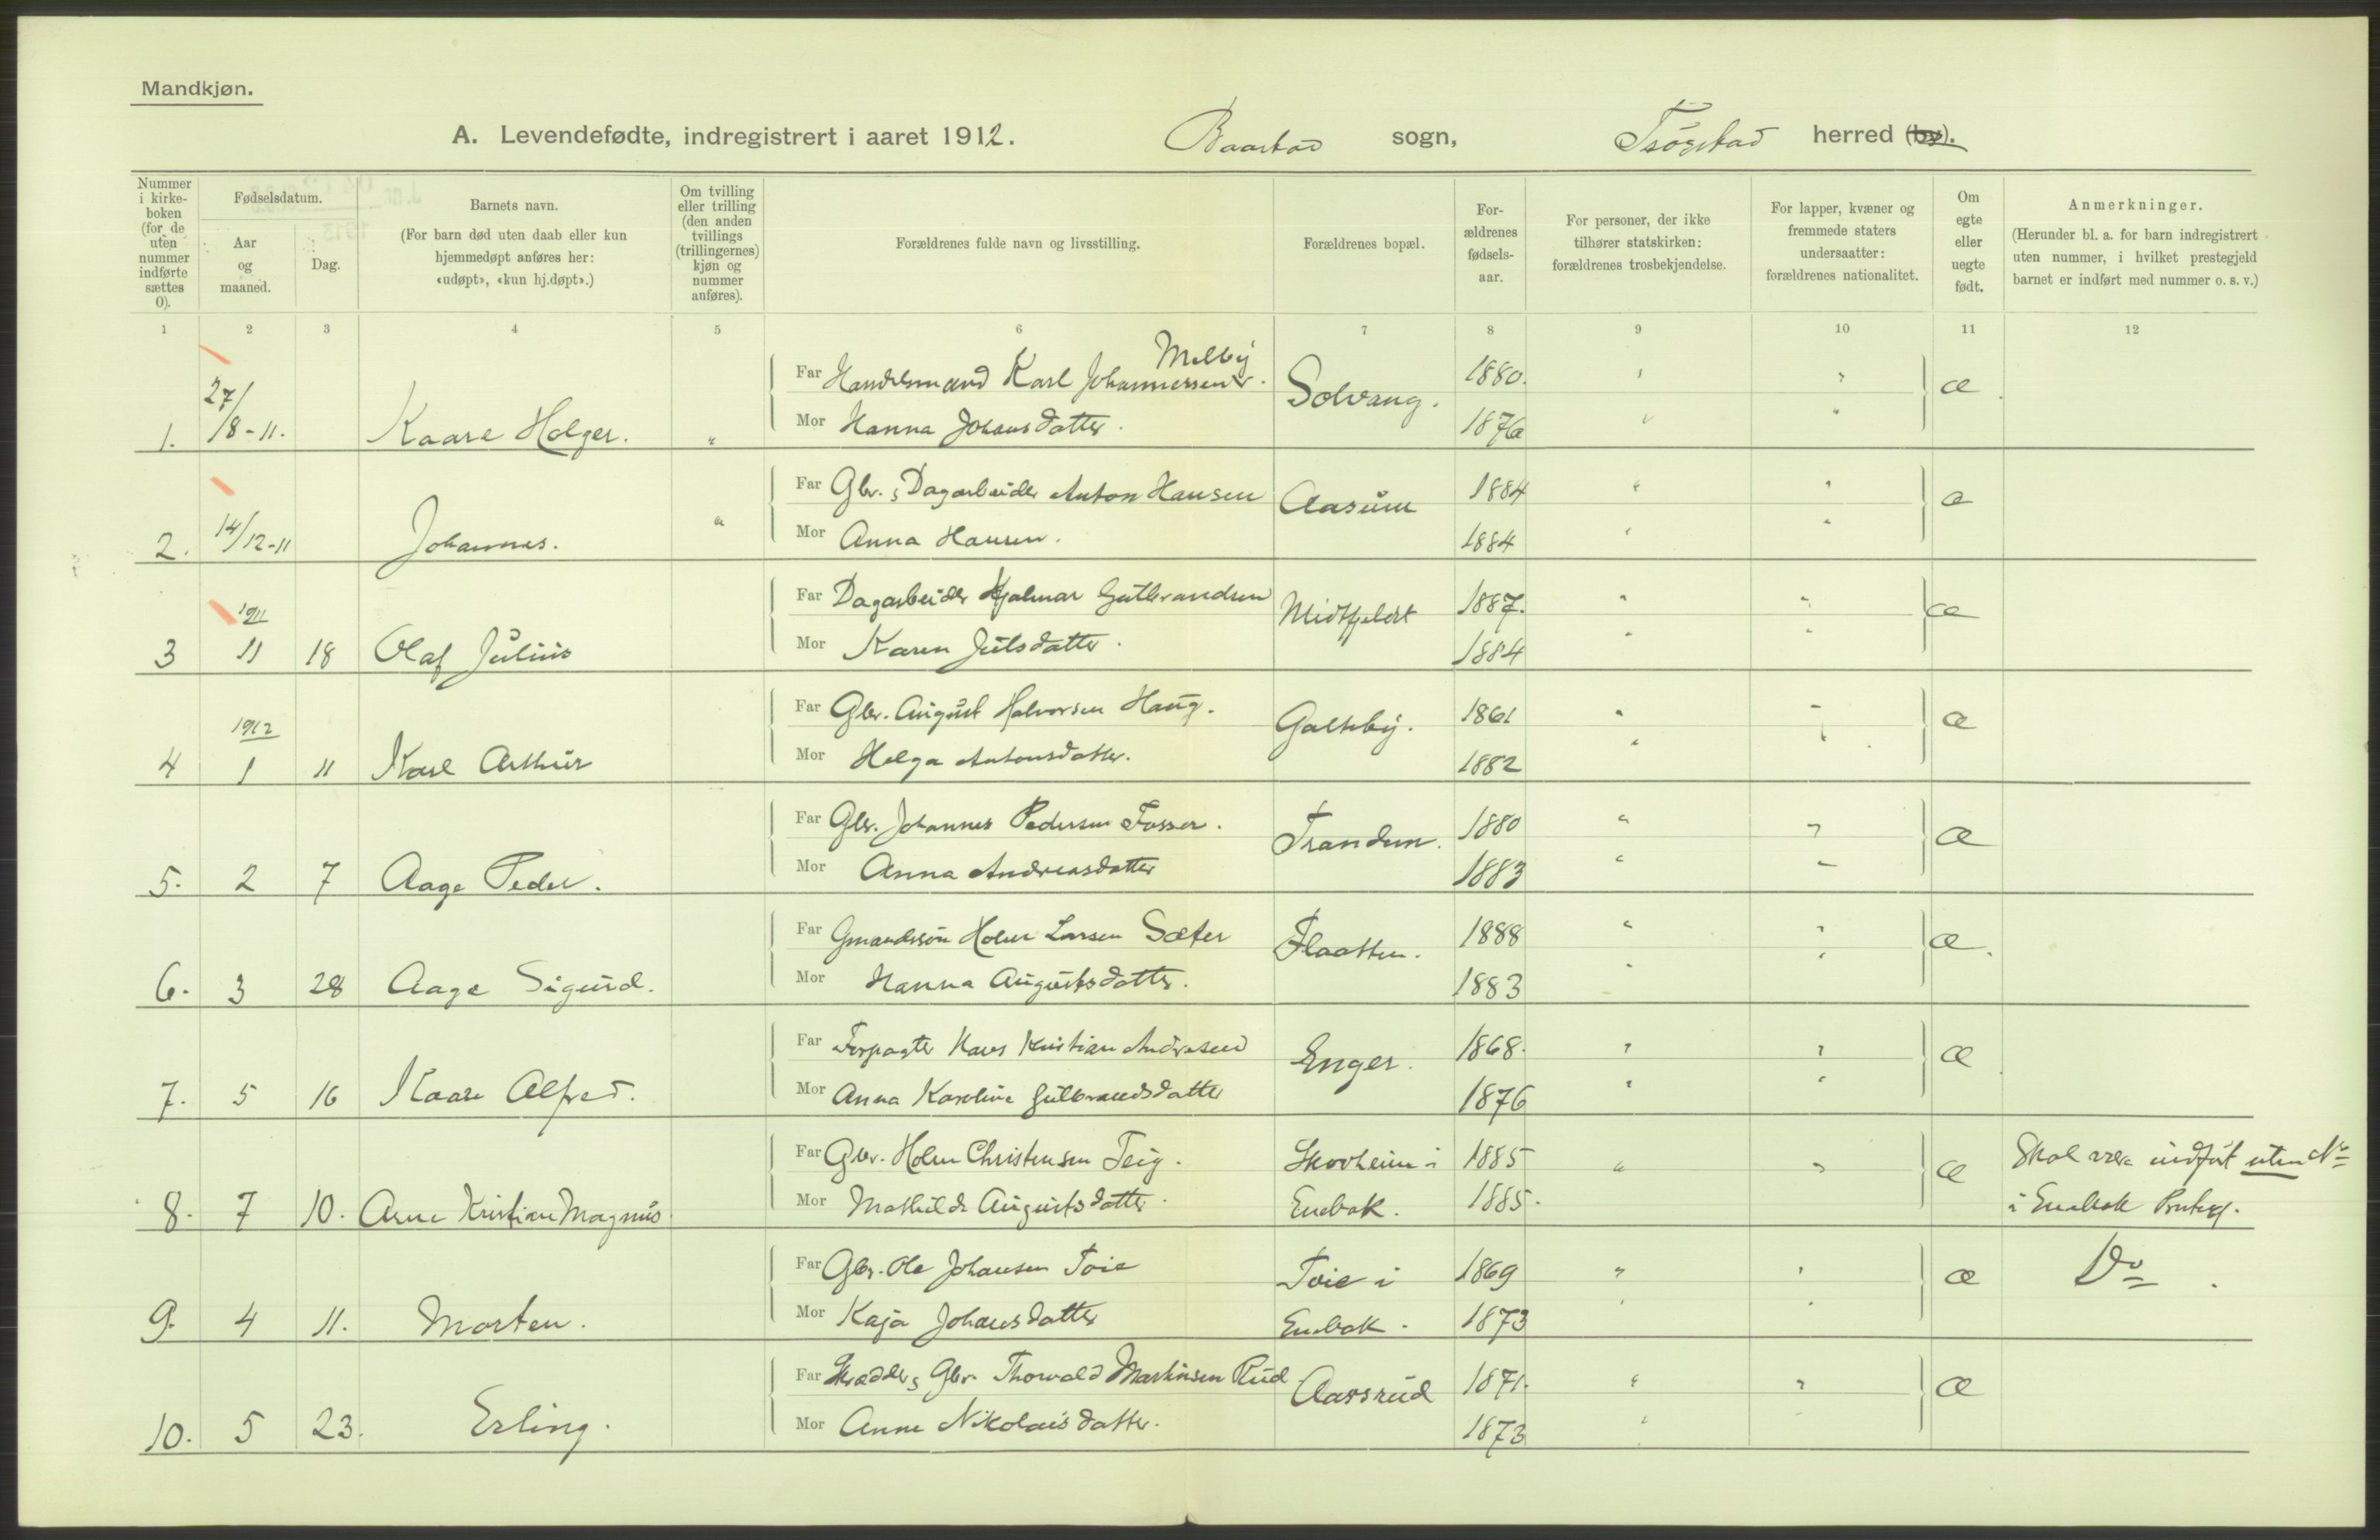 Mandkjøn.
A. Levendefødte, indregistrert i aaret 1912. Baastad sogn, Trøgstad herred (by).
Nummer i kirke-boken (for de uten nummer indførte sættes 0).
Fødselsdatum.
Aar og maaned.
Dag.
Barnets navn.
(For barn død uten daab eller kun hjemmedøpt anføres her: «udøpt», «kun hj.døpt».)
Om tvilling eller trilling (den anden tvillings (trillingernes) kjøn og nummer anføres).
Forældrenes fulde navn og livsstilling.
Forældrenes bopæl.
For-ældrenes fødsels-aar.
For personer, der ikke tilhører statskirken: forældrenes trosbekjendelse.
For lapper, kvæner og fremmede staters undersaatter: forældrenes nationalitet.
Om egte eller uegte født.
Anmerkninger.
(Herunder bl. a. for barn indregistrert uten nummer, i hvilket prestegjeld barnet er indført med nummer o. s. v.)
1 2 3 4 5 6 7 8 9 10 11 12
Melby
1. 27/8-11. Kaare Holger. " Far Handelsmand Karl Johannessen Solvang. 1880. " " æ
Mor Hanna Johansdatter. 1876 " "
2. 14/12-11 Johannes. " Far Gbr., Dagarbeider Anton Hansen Aasum 1884 " " æ
Mor Anna Hansen. 1884 " "
1911
3 11 18 Olaf Julius Far Dagarbeider Hjalmar Gutbrandsen Midtfjeldet 1887. " " æ
Mor Karen Julsdatter. 1884 " "
1912
4 1 11 Karl Arthur Far Gbr. August Halvorsen Haug. Galteby. 1861 " " æ
Mor Helga Antonsdatter. 1882 " "
5. 2 7 Aage Peder. Far Gbr. Johannes Pedersen Fosser. Trandem. 1880 " " æ
Mor Anna Andreasdatter 1883 " "
6. 3 28 Aage Sigurd. Far Gmandssøn Holm Larsen Sæter Flaatten. 1888 " " æ.
Mor Hanna Augustsdatter. 1883 " "
7. 5 16 Kaare Alfred. Far Forpagter Hans Kristian Andresen Enger. 1868. " " æ
Mor Anna Karoline Gulbrandsdatter 1876 " "
8. 7 10. Arne Kristian Magnus Far Gbr. Holm Christensen Teig. Skovheim i 1885 " " æ Skal være indført uten No
Mor Mathilde Augustsdatter. Enebak. 1885. i Enebak Prstgj.
9. 4 11. Morten. Far Gbr. Ole Johansen Toie Toie i 1869 " " æ Do.
Mor Kaja Johansdatter Enebak. 1873 " "
10. 5 23. Erling. Far Skrædder, Gbr. Thorvald Martinsen Rud Aasrud 1871. " " æ
Mor Anne Nikolaisdatter. 1873 " "